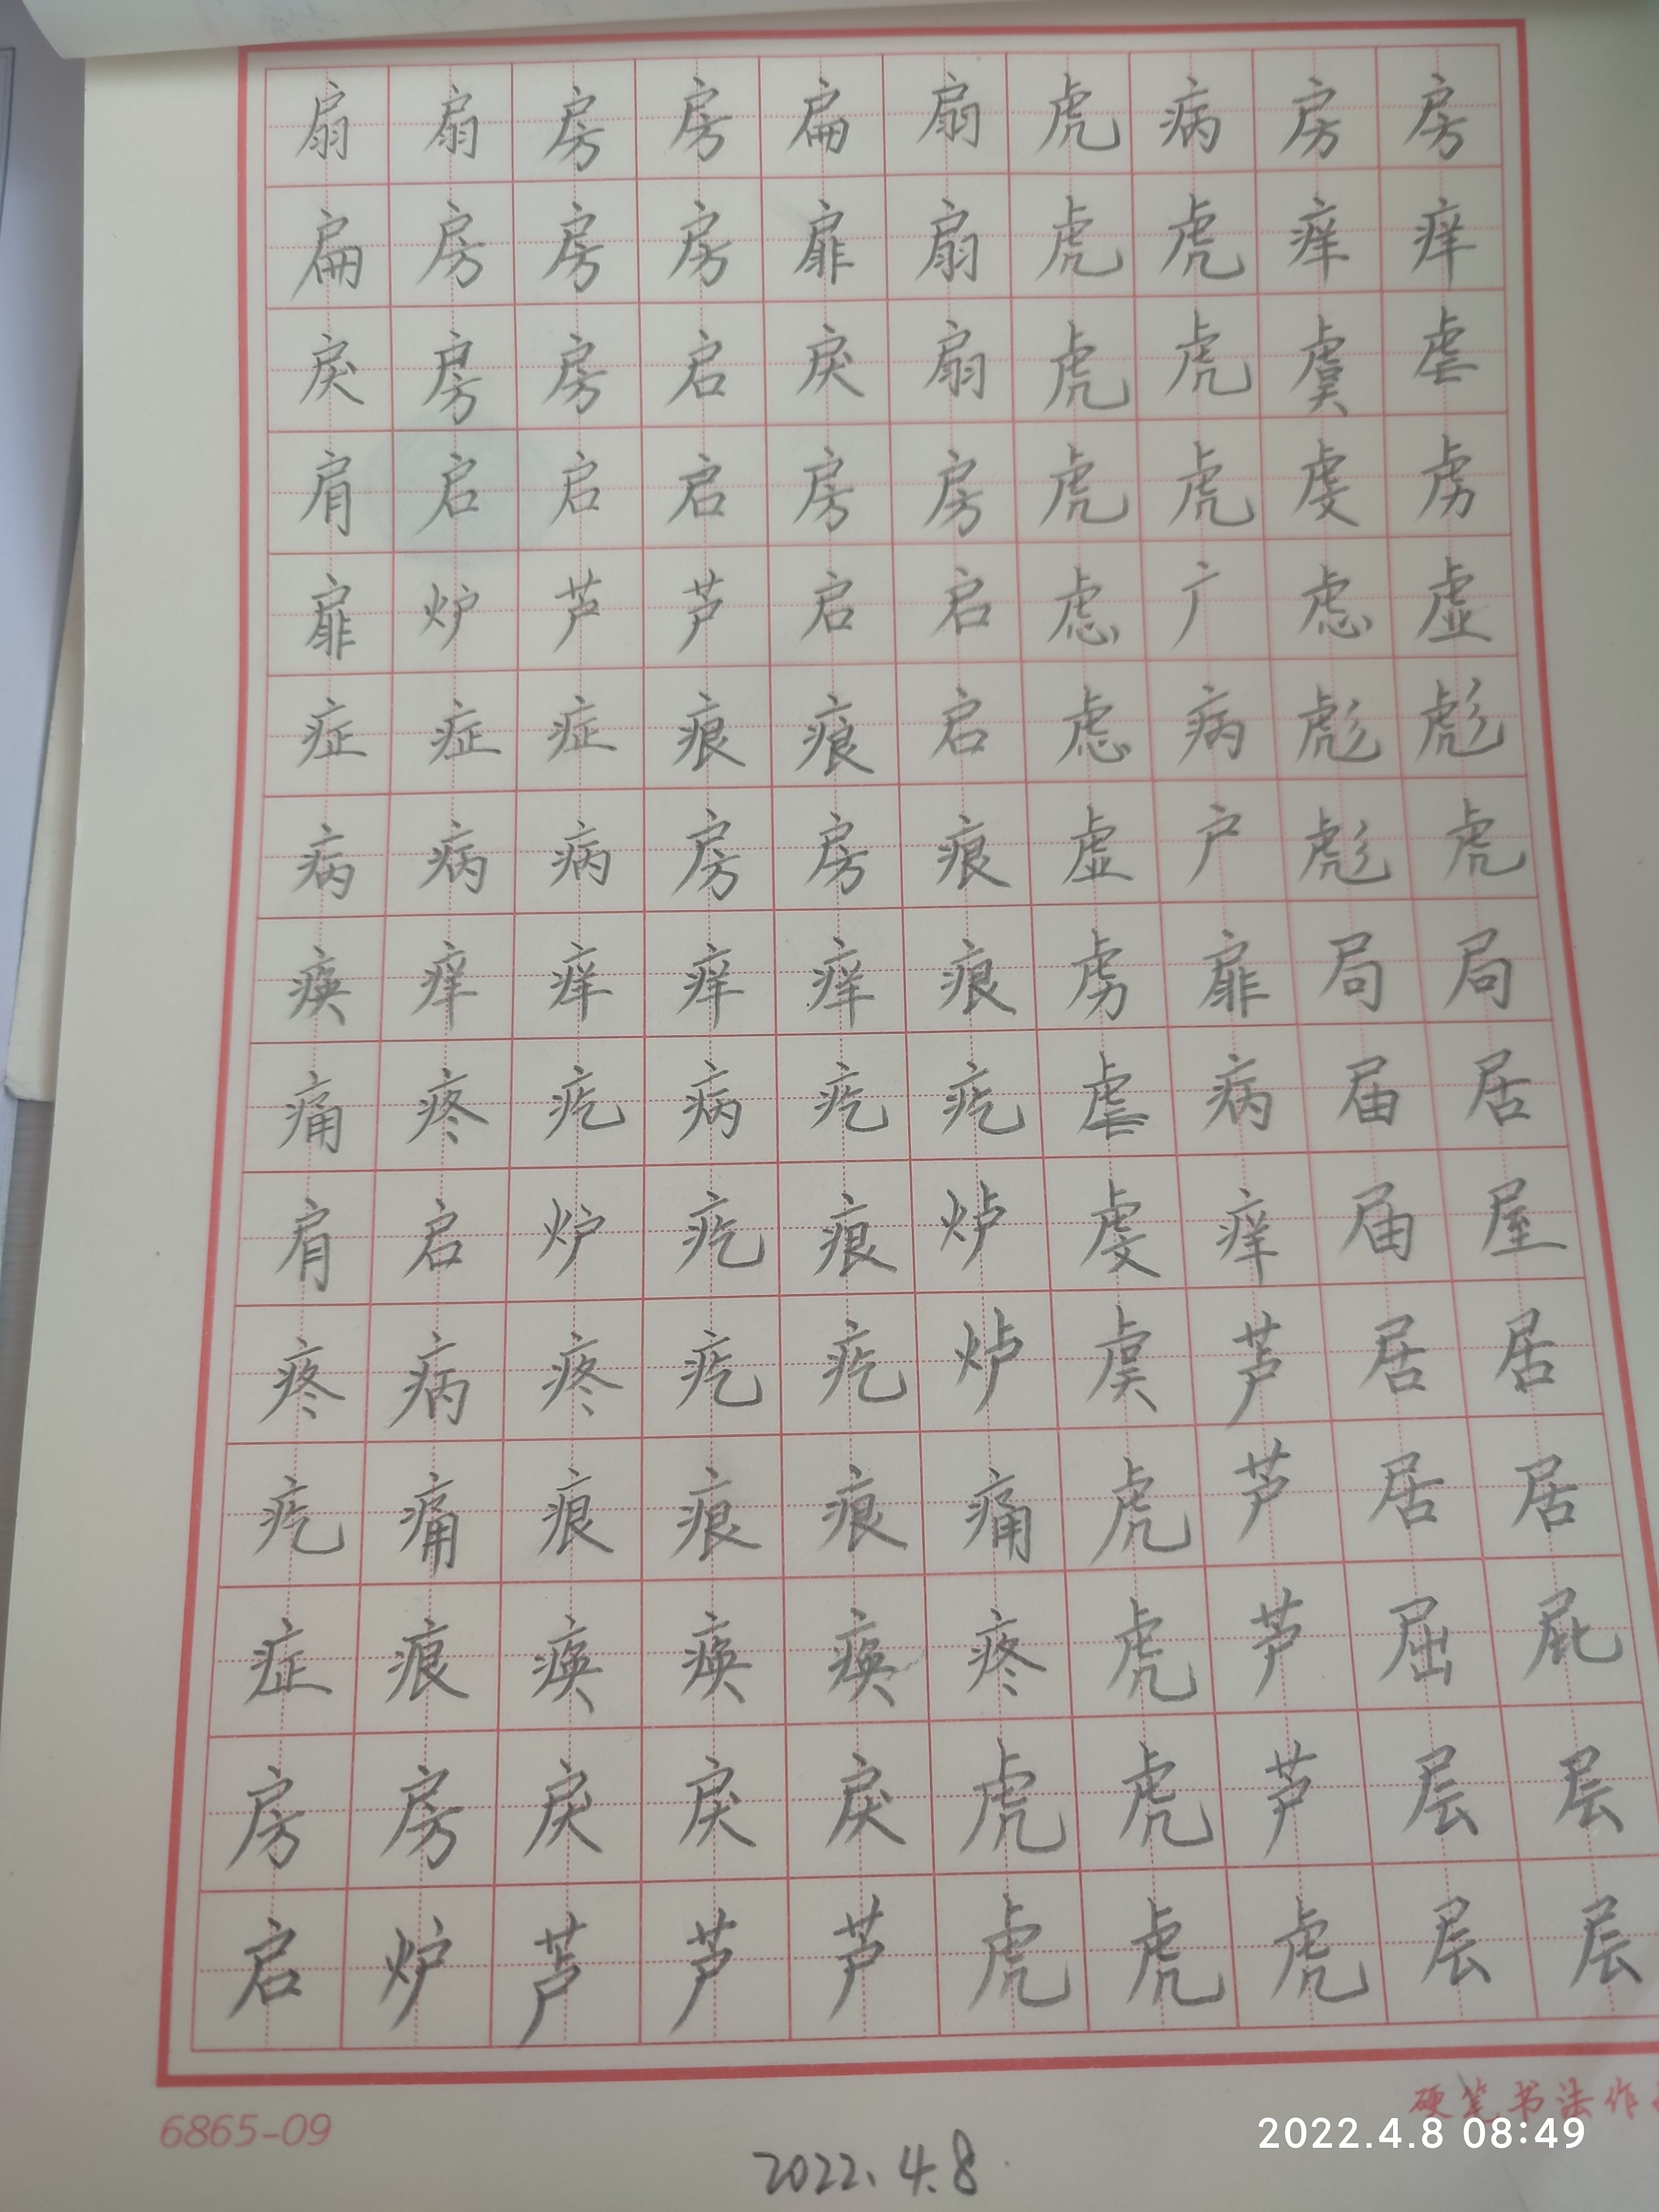 扇扇房房扁扇虎病房房
扁房房房扉扇虎虎痒痒
戾房房启戾扇虎虎虞虐
肩启启启房房虎虎虔虏
扉炉芦芦启启虑广虑虚
症症症痕痕启虑病彪彪
病病病房房痕虚户彪虎
痪痒痒痒痒痕虏扉局局
痛疼疙病疙疙虐病届居
肩启炉疙痕炉虔痒届屋
疼病疼疙疙炉虞芦居居
疙痛痕痕痕痛虎芦居居
症痕痪痪痪疼虎芦屈屁
房房戾戾戾虎虎芦层层
启炉芦芦芦虎虎虎层层
硬笔书法作
6865-09
2022.4.8 08:49
2022.4.8